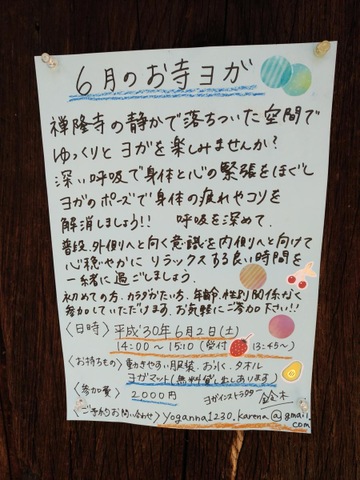 6月のお寺ヨガ
禅隆寺の静かで落ちついた空間で
ゆっくりとヨガを楽しみませんか?
深い呼吸で身体と心の緊張をほぐし
ヨガのポーズで身体の疲れやコリを
解消しましょう!! 呼吸を深めて、
普段、外側へと向く意識を内側へと向けて
心穏やかに リラックスする良い時間を
一緒に過ごしましょう。
初めての方、カラダかたい方、年齢、性別関係なく
参加していただけます、お気軽にご参加下さい!!
〈日時〉 平成30年6月2日(土)
14:00〜15:10 (受付 13:45〜)
〈お持ちもの〉動きやすい服装、お水、タオル
ヨガマット(無料貸し出しあります)
〈参加費〉 2,000円 ヨガインストラクター 鈴木
〈ご予約お問い合わせ〉 Yoganna1230.karena@gmail.
com